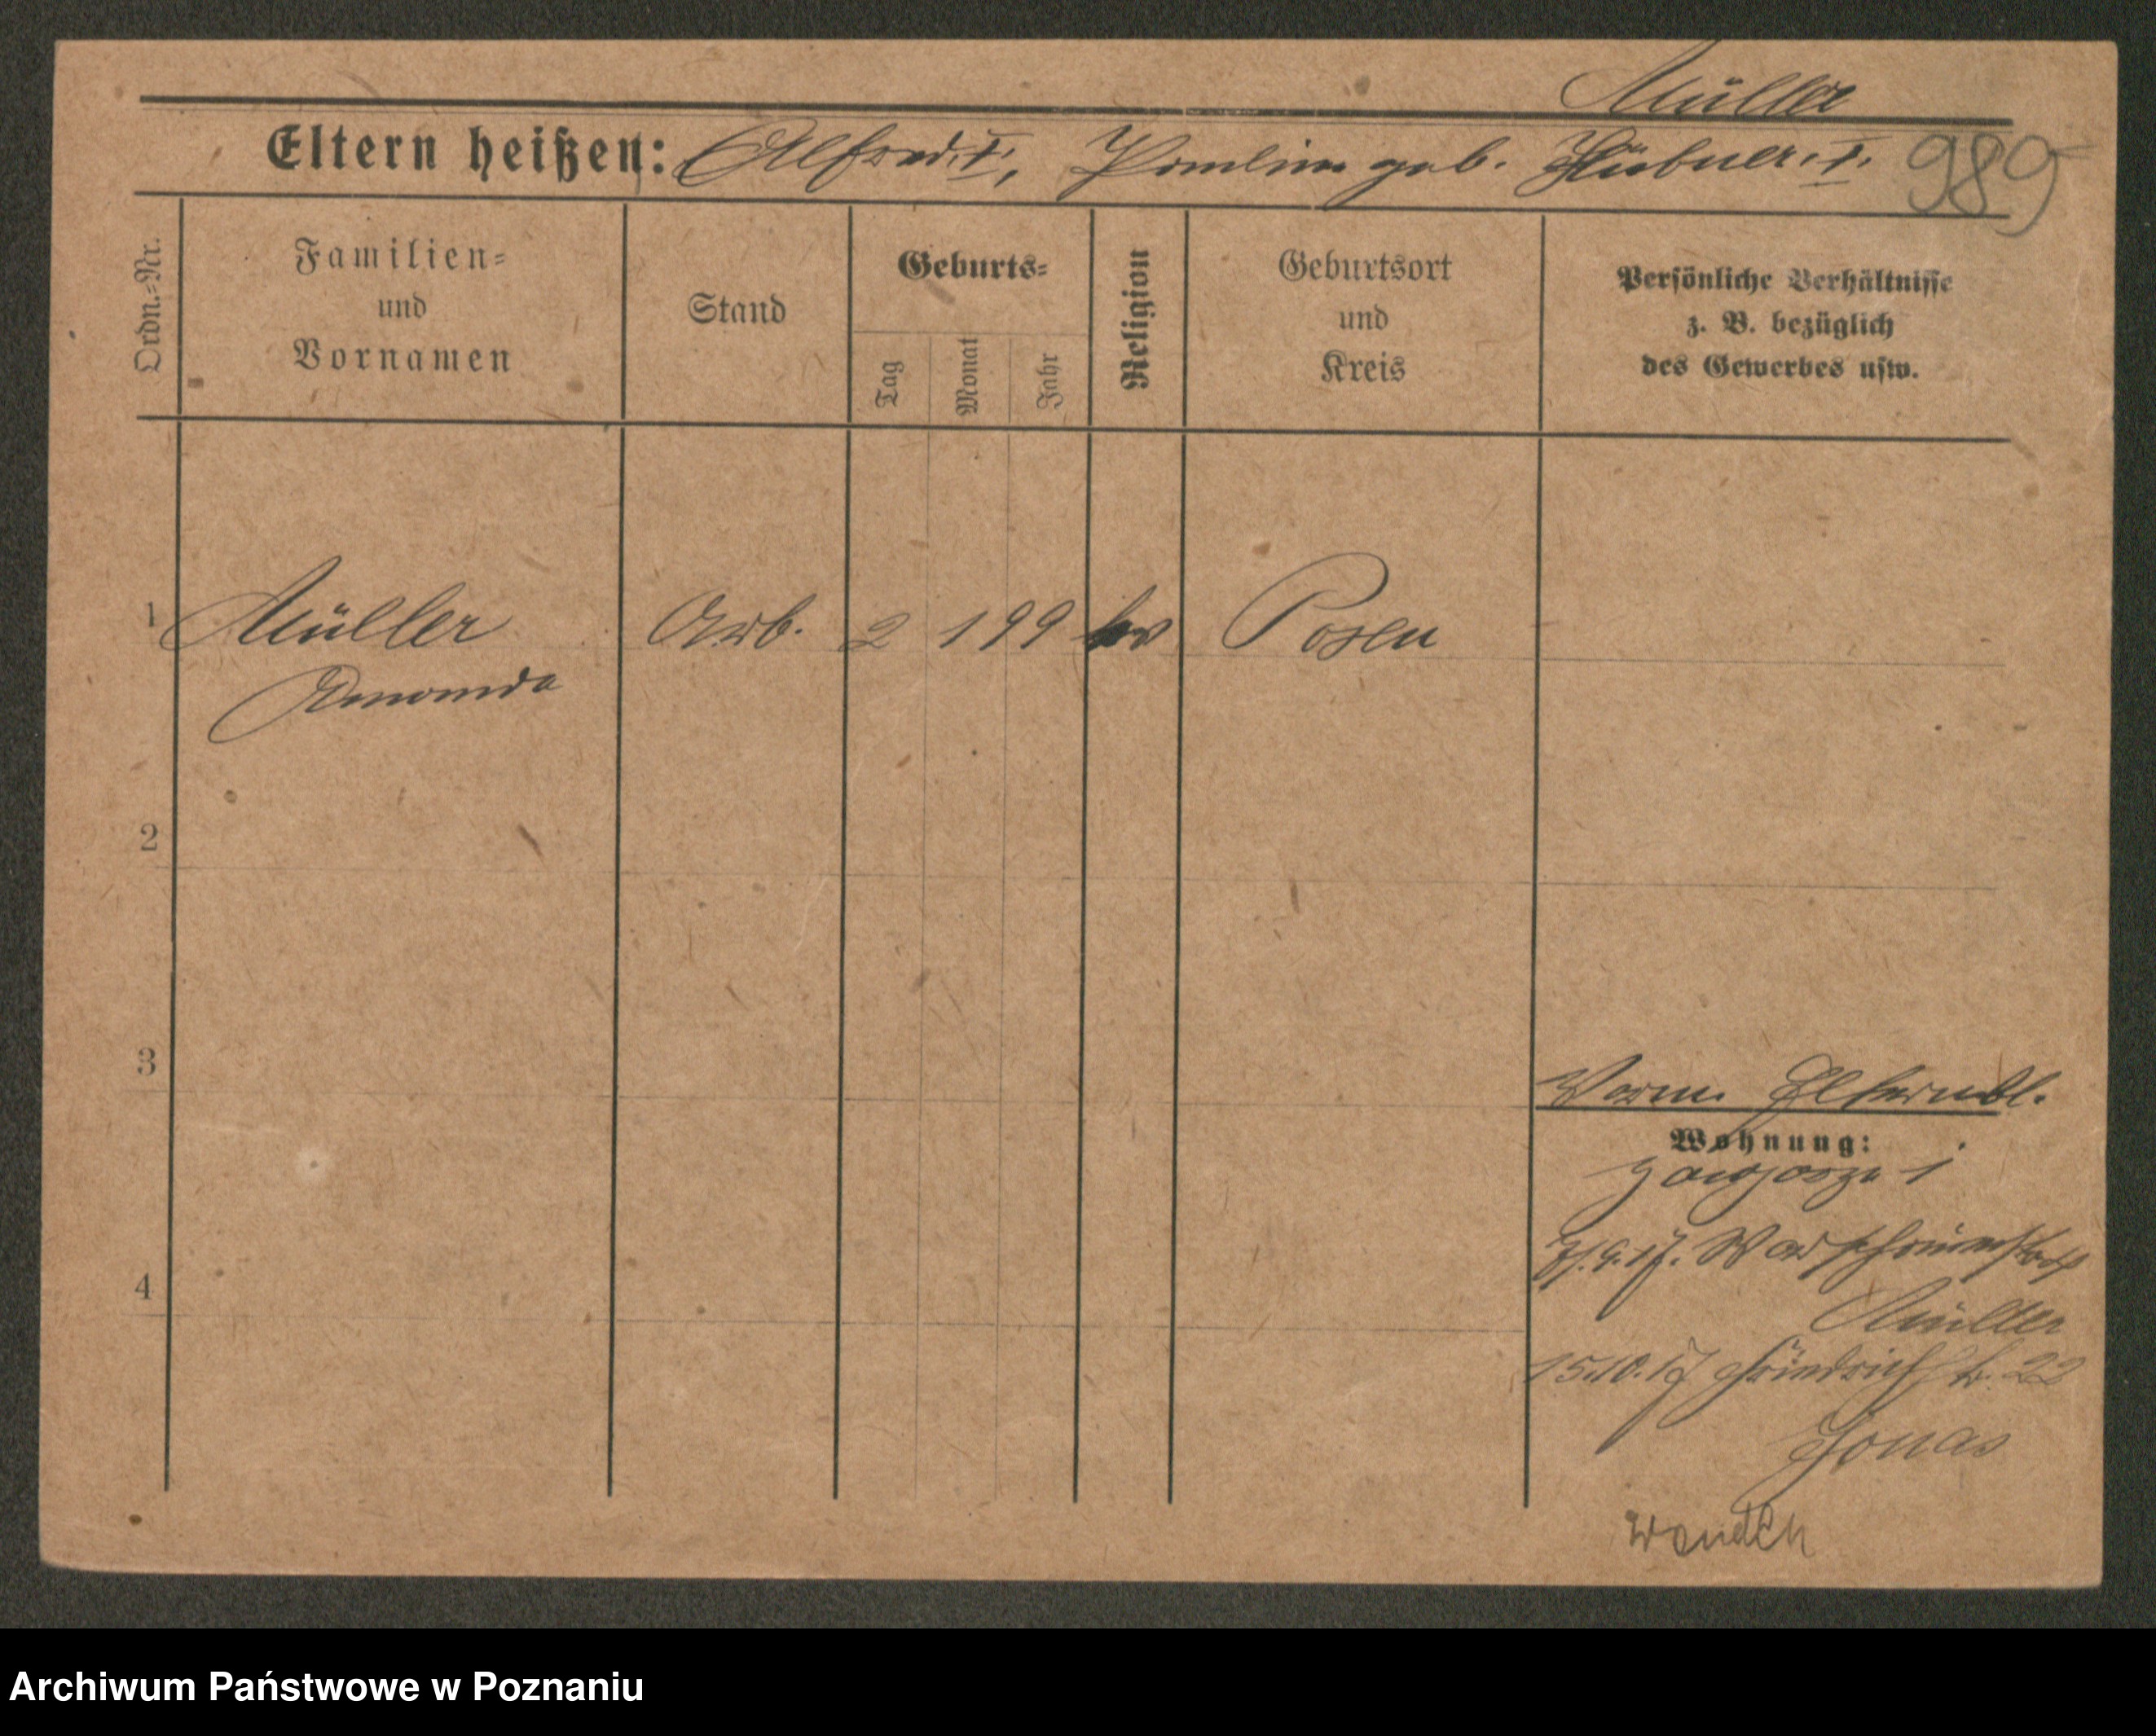 Müller
Eltern heißen: Alfred. I, Paulin geb. Hübner. I.
989
Ordn.=Nr.
Familien=
und
Vornamen
Stand
Geburts=
Tag
Monat
Jahr
Religion
Geburtsort
und
Kreis
Persönliche Verhältnisse
z. B. bezüglich
des Gewerbes usw.
1 Müller Arb. 2 1 99 Posen
2
3
Vorm. Elternbl.
Wohnung:
4
Müller
15.10.17 22
Jonas
Archiwum Państwowe w Poznaniu